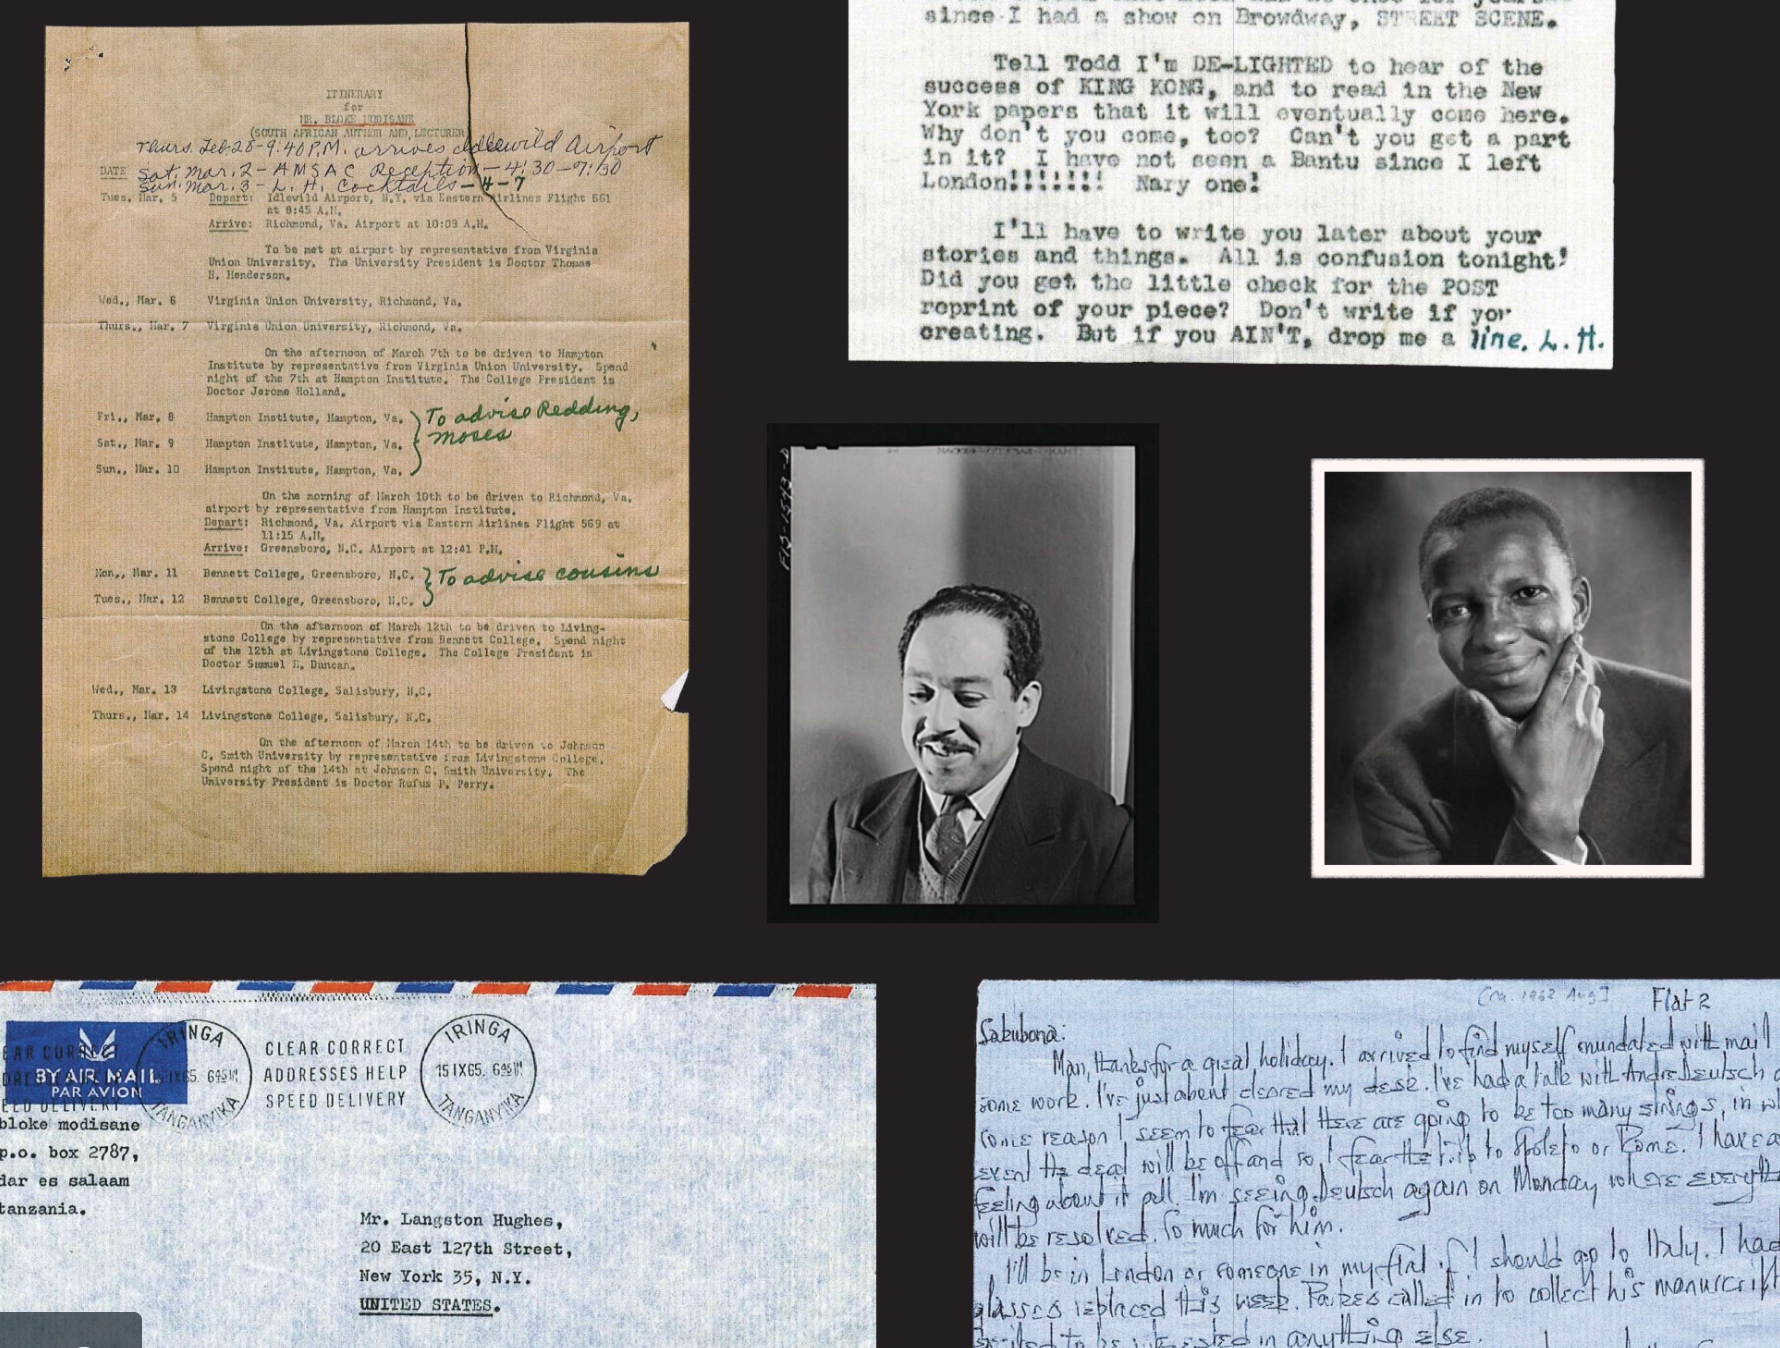 ITINERARY
for
MR. BLOKE MODISANE
(SOUTH AFRICAN AUTHOR AND LECTURER
Thurs. Feb. 28-9:40 P.M. arrives Idlewild Airport
DATE Sat. Mar. 2 - AMSAC Reception - 4:30-7:30
Sun. Mar. 3 - L. H. Cocktails - 4-7
Tues. Mar. 5 Depart: Idlewild Airport, N.Y. via Eastern Airlines Flight 661
at 8:45 A.M.
Arrive: Richmond, Va. Airport at 10:09 A.M.
To be met at airport by representative from Virginia
Union University. The University President is Doctor Thomas
H. Henderson.
Wed., Mar. 6 Virginia Union University, Richmond, Va.
Thurs., Mar. 7 Virginia Union University, Richmond, Va.
On the afternoon of March 7th to be driven to Hampton
Institute by representative from Virginia Union University. Spend
night of the 7th at Hampton Institute. The College President is
Doctor Jerome Holland.
Fri., Mar. 8 Hampton Institute, Hampton, Va.
Sat., Mar. 9 Hampton Institute, Hampton, Va.
Sun., Mar. 10 Hampton Institute, Hampton, Va.
To advise Redding,
Moses
On the morning of March 10th to be driven to Richmond, Va.
airport by representative from Hampton Institute.
Depart: Richmond, Va. Airport via Eastern Airlines Flight 569 at
11:15 A.M.
Arrive: Greensboro, N.C. Airport at 12:41 P.M.
Mon., Mar. 11 Bennett College, Greensboro, N.C.
Tues., Mar. 12 Bennett College, Greensboro, N.C.
To advise cousins
On the afternoon of March 12th to be driven to Living-
stone College by representative from Bennett College. Spend night
of the 12th at Livingstone College. The College President is
Doctor Samuel E. Duncan.
Wed., Mar. 13 Livingstone College, Salisbury, N.C.
Thurs., Mar. 14 Livingstone College, Salisbury, N.C.
On the afternoon of March 14th to be driven to Johnson
C. Smith University by representative from Livingstone College.
Spend night of the 14th at Johnson C. Smith University. The
University President is Doctor Rufus P. Perry.
since I had a show on Browdway, STREET SCENE.
Tell Todd I'm DE-LIGHTED to hear of the
success of KING KONG, and to read in the New
York papers that it will eventually come here.
Why don't you come, too? Can't you get a part
in it? I have not seen a Bantu since I left
London!!!!!!! Nary one!
I'll have to write you later about your
stories and things. All is confusion tonight!
Did you get the little check for the POST
reprint of your piece? Don't write if yor
creating. But if you AIN'T, drop me a line. L. H.
BY AIR MAIL
PAR AVION
IRINGA
TANGANYIKA
CLEAR CORRECT
ADDRESSES HELP
SPEED DELIVERY
IRINGA
15 IX65
TANGANYIKA
bloke modisane
p.o. box 2787,
dar es salaam
tanzania.
Mr. Langston Hughes,
20 East 127th Street,
New York 35, N.Y.
UNITED STATES.
[ca. 1962 Aug] Flat 2
Sakubona:
Man, thanks for a great holiday. I arrived to find myself inundated with mail
some work. I've just about cleared my desk. I've had a talk with Andre Deutsch
some reason I seem to fear that there are going to be too many strings, in
event the deal will be off and so I fear the trip to Spoleto or Rome. I have a
feeling about it all. I'm seeing Deutsch again on Monday where everyth
will be resolved. So much for him.
I'll be in London or someone in my flat if I should go to Italy. I had
glasses replaced this week. Parkes called in to collect his manuscript
to be interested in anything else.